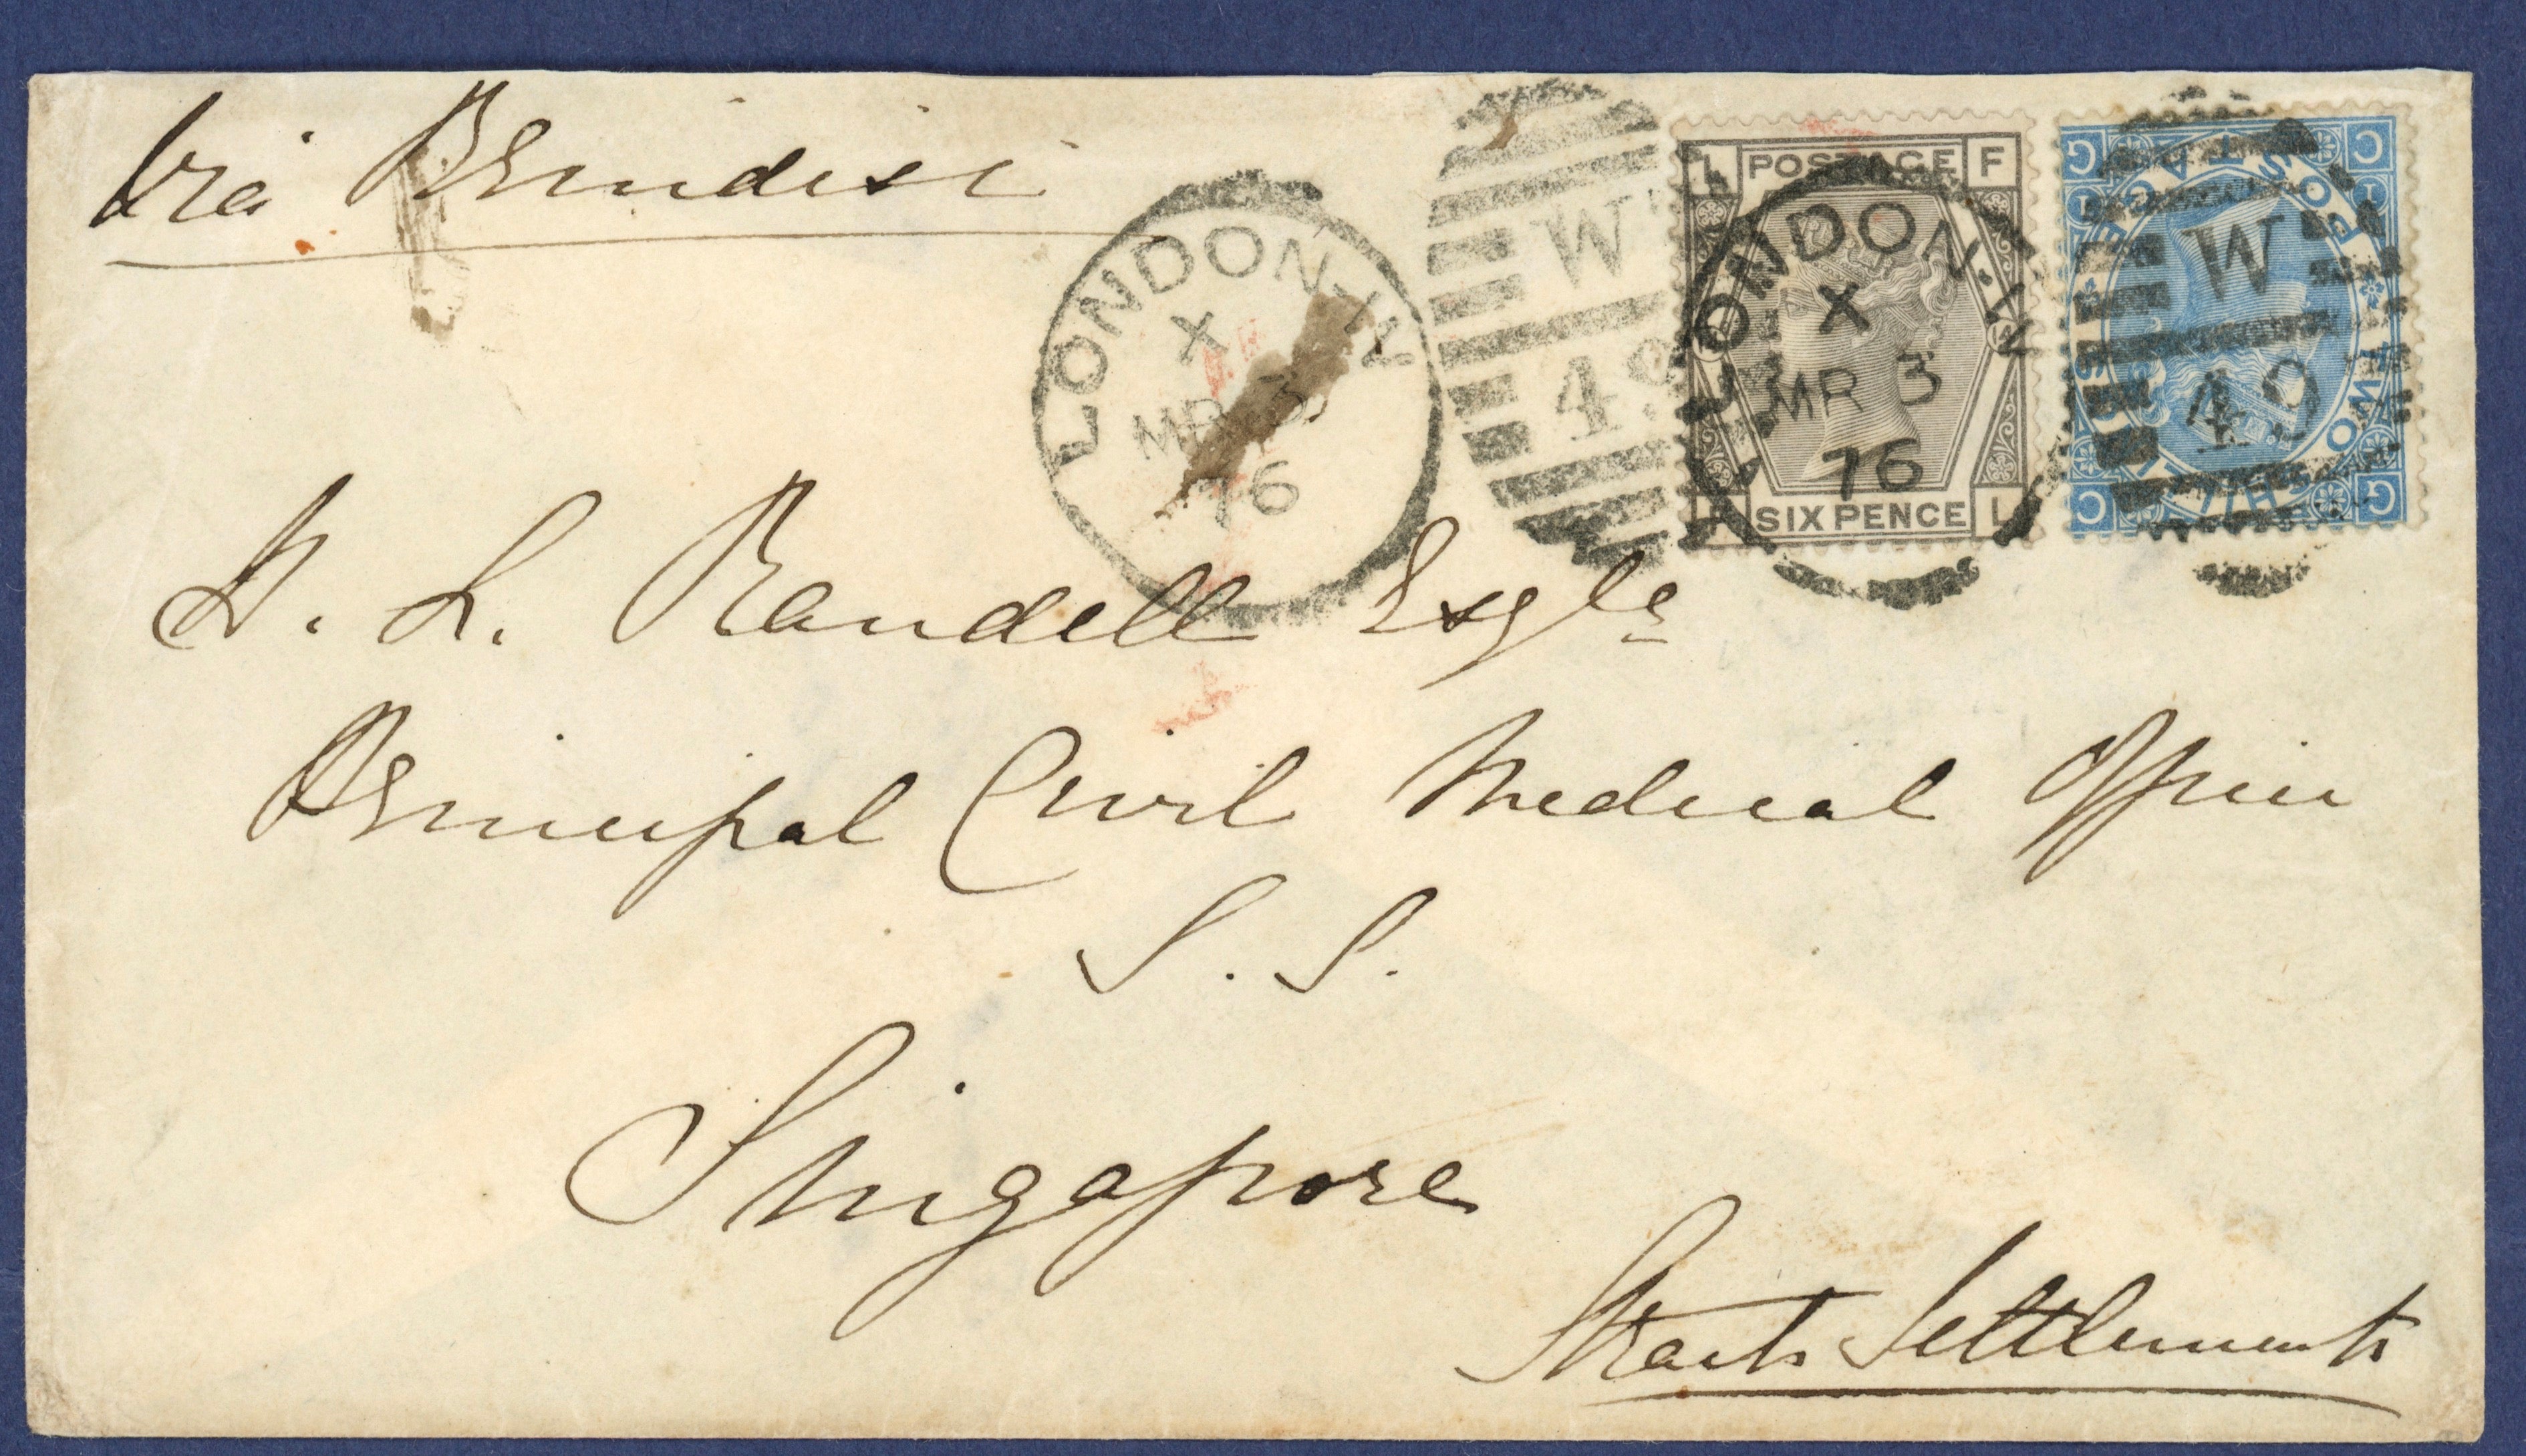 Via Brindisi
LONDON·W
X
MR 3
76
W
49
L POSTAGE F
LONDON·W
X
MR 3
76
F SIX PENCE L
POSTAGE
TWO SHILLINGS
W
49
H. L. Randell Esqre
Principal Civil Medical Officer
S. S.
Singapore
Straits Settlements